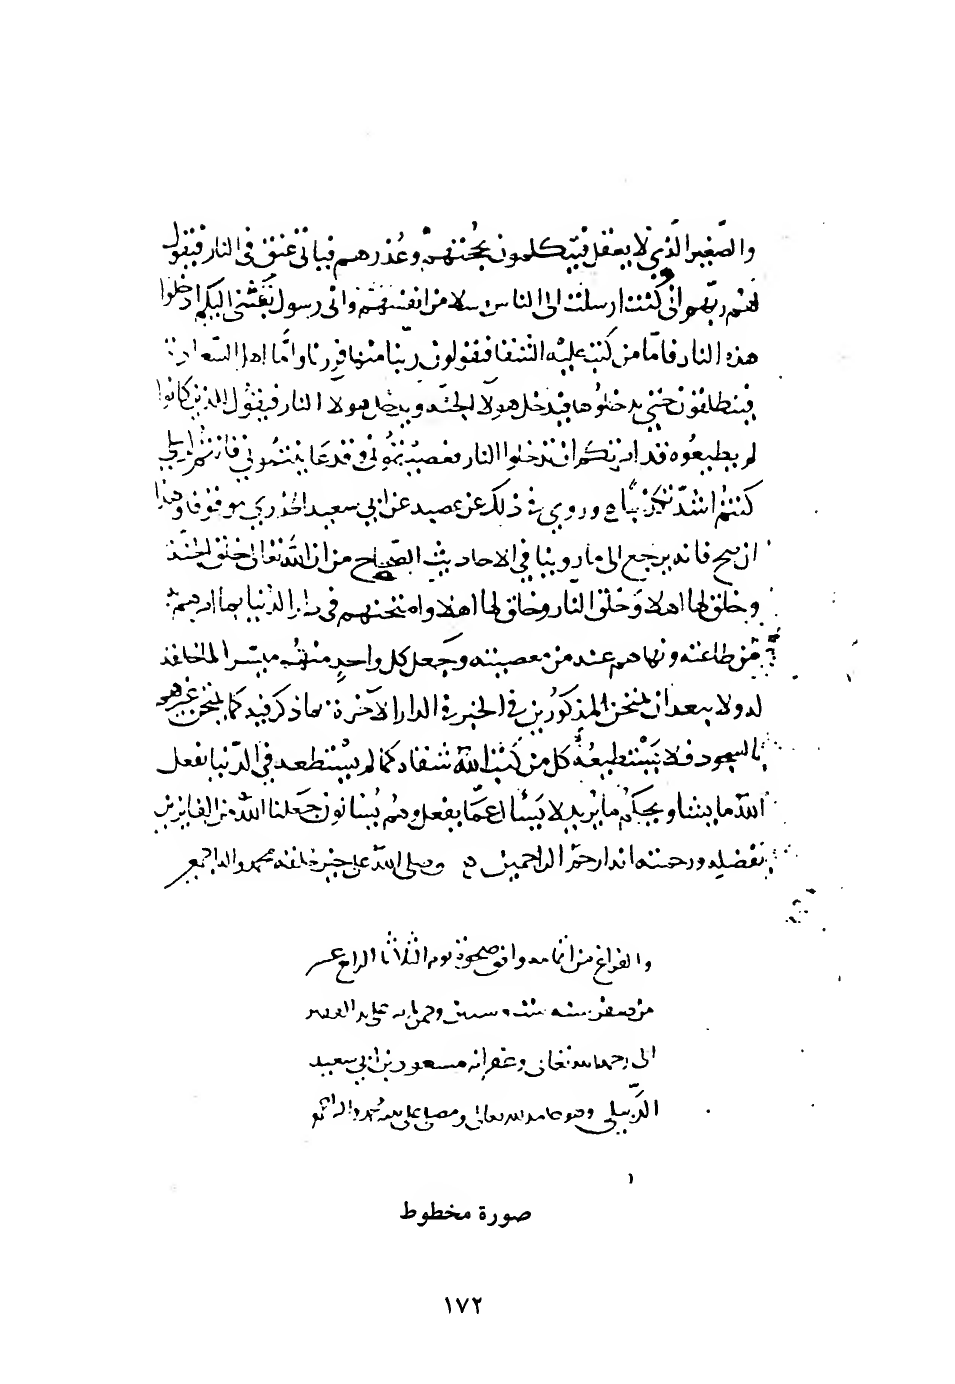 والصغير الذي لا يعقل فيتكلمون بحجتهم وعذرهم فياتي عنق في النار فيقول
لهم ربهم اني كنت ارسلت الى الناس رسلا من انفسهم واني رسول نفسي اليكم ادخلوا
هذه النار فاما من كتب عليه الشقا فيقولون ربنا منها فررنا واما اهل السعادة
فينطلقون حتى يدخلوها فيدخل هولا الجنة ويدخل هولا النار فيقول للذين كانوا
لم يطيعوه قد امرتكم ان تدخلوا النار فعصيتموني وقد عاينتموني فانتم لرسلي
كنتم اشد تكذيبا وروي في ذلك عن عن ابي سعيد الخدري موقوفا وهذا
ان صح فانه يرجع الى ما روينا في الاحاديث الصحاح من ان الله تعالى خلق الجنة
وخلق لها اهلا وخلق النار وخلق لها اهلا وامتحنهم في دار الدنيا بما امرهم به
من طاعته ونهاهم عنه من معصيته وجعل كل واحد منهم ميسرا لما خلقه
له ولا يبعد ان يمتحن المذكورين في الخبر في الدار الآخرة بما ذكر فيه كما يمتحن غيرهم
بالسجود فلا يستطيعه كل من كتب الله شقاه كما لم يستطعه في الدنيا يفعل
الله ما يشا ويحكم ما يريد لا يسأل عما يفعل وهم يسالون جعلنا الله من الفايزين
بفضله ورحمته انه ارحم الراحمين وصلى الله على خير خلقه محمد واله اجمعين
والفراغ من اتمامه وافق ضحوة يوم الثلاثا الرابع عشر
من صفر سنة ستين وخمسمايه على يد الفقير
الى رحمة الله تعالى وغفرانه مسعود بن ابي سعيد
وهو حامد لله تعالى ومصليا على نبيه محمد واله
صورة مخطوط
١٧٢